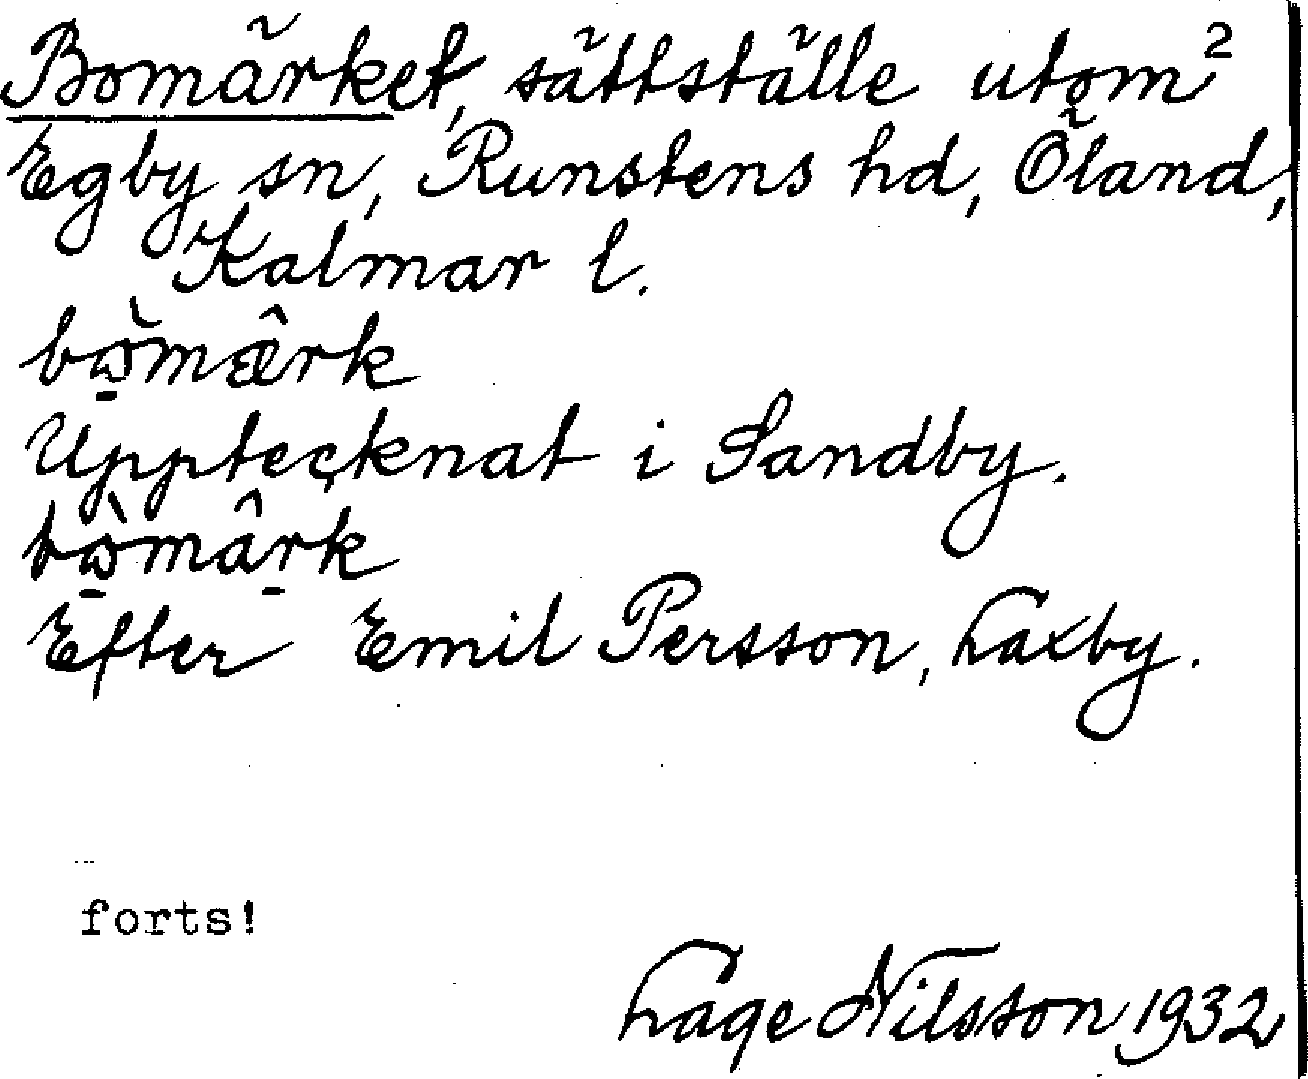 Bomärket, sättställe utom 2
Egby sn, Runstens hd, Öland,
Kalmar l.
bo̠̊̀mæ̂rk
Upptecknat i Sandby.
bo̠̊̀mâr̠k
Efter Emil Persson, Laxby.
forts!
Lage Nilsson 1932